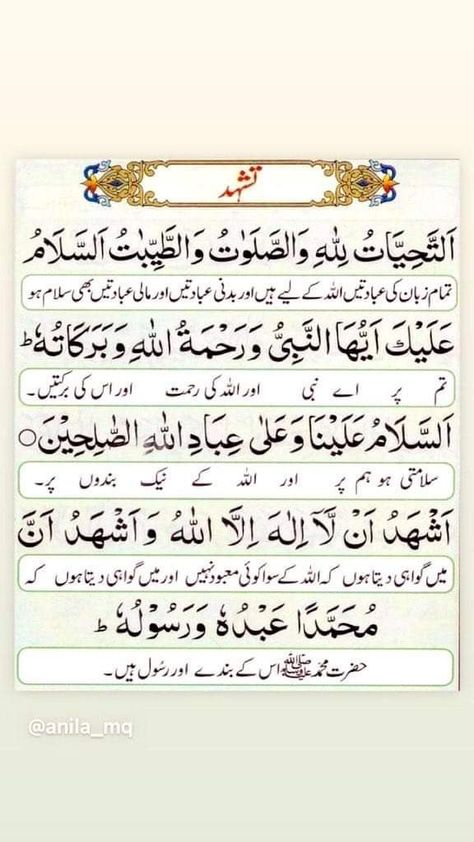 تشہد
اَلتَّحِيَّاتُ لِلّٰهِ وَالصَّلَوٰتُ وَالطَّيِّبٰتُ اَلسَّلَامُ
تمام زبان کی عبادتیں اللہ کے لیے ہیں اور بدنی عبادتیں اور مالی عبادتیں بھی سلام ہو
عَلَيْكَ اَيُّهَا النَّبِىُّ وَرَحْمَةُ اللّٰهِ وَبَرَكَاتُهٗ ؕ
تم پر اے نبی اور اللہ کی رحمت اور اس کی برکتیں۔
اَلسَّلَامُ عَلَيْنَا وَعَلٰى عِبَادِ اللّٰهِ الصّٰلِحِيْنَ ○
سلامتی ہو ہم پر اور اللہ کے نیک بندوں پر۔
اَشْهَدُ اَنْ لَّآ اِلٰهَ اِلَّا اللّٰهُ وَاَشْهَدُ اَنَّ
میں گواہی دیتا ہوں کہ اللہ کے سوا کوئی معبود نہیں اور میں گواہی دیتا ہوں کہ
مُحَمَّدًا عَبْدُهٗ وَرَسُوْلُهٗ ؕ
حضرت محمد ﷺ اس کے بندے اور رسُول ہیں۔
@anila_mq